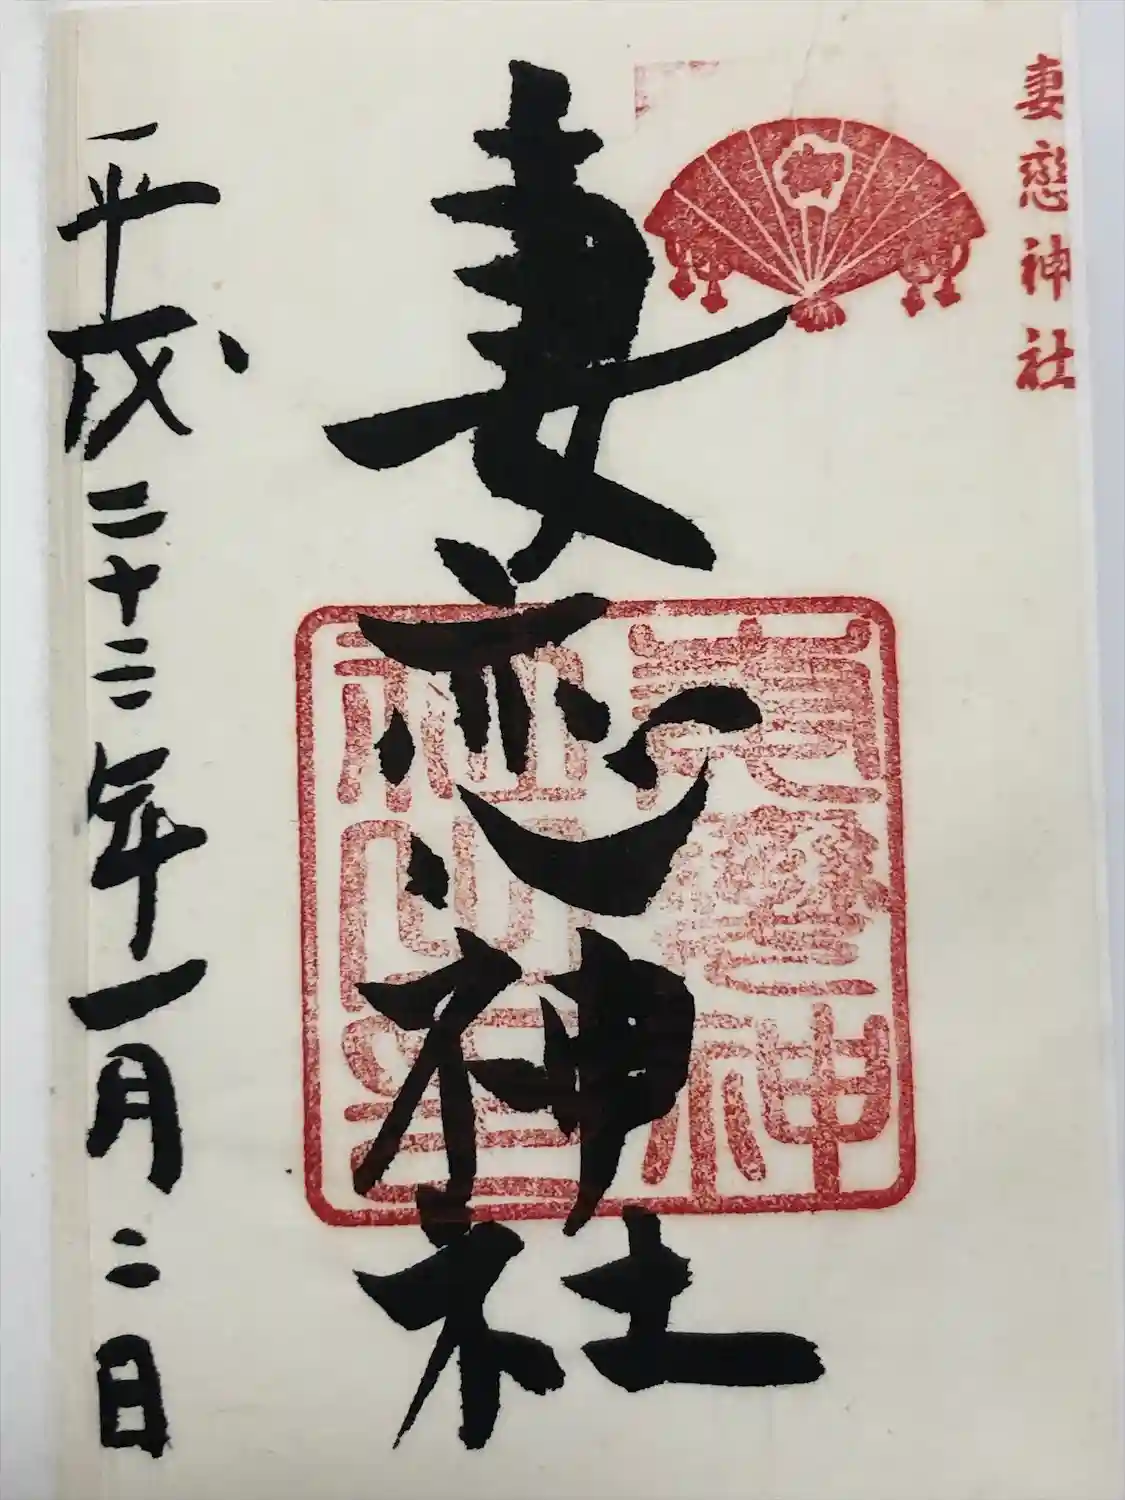 妻戀神社
妻恋神社
妻戀神社之印
平成二十二年一月二日